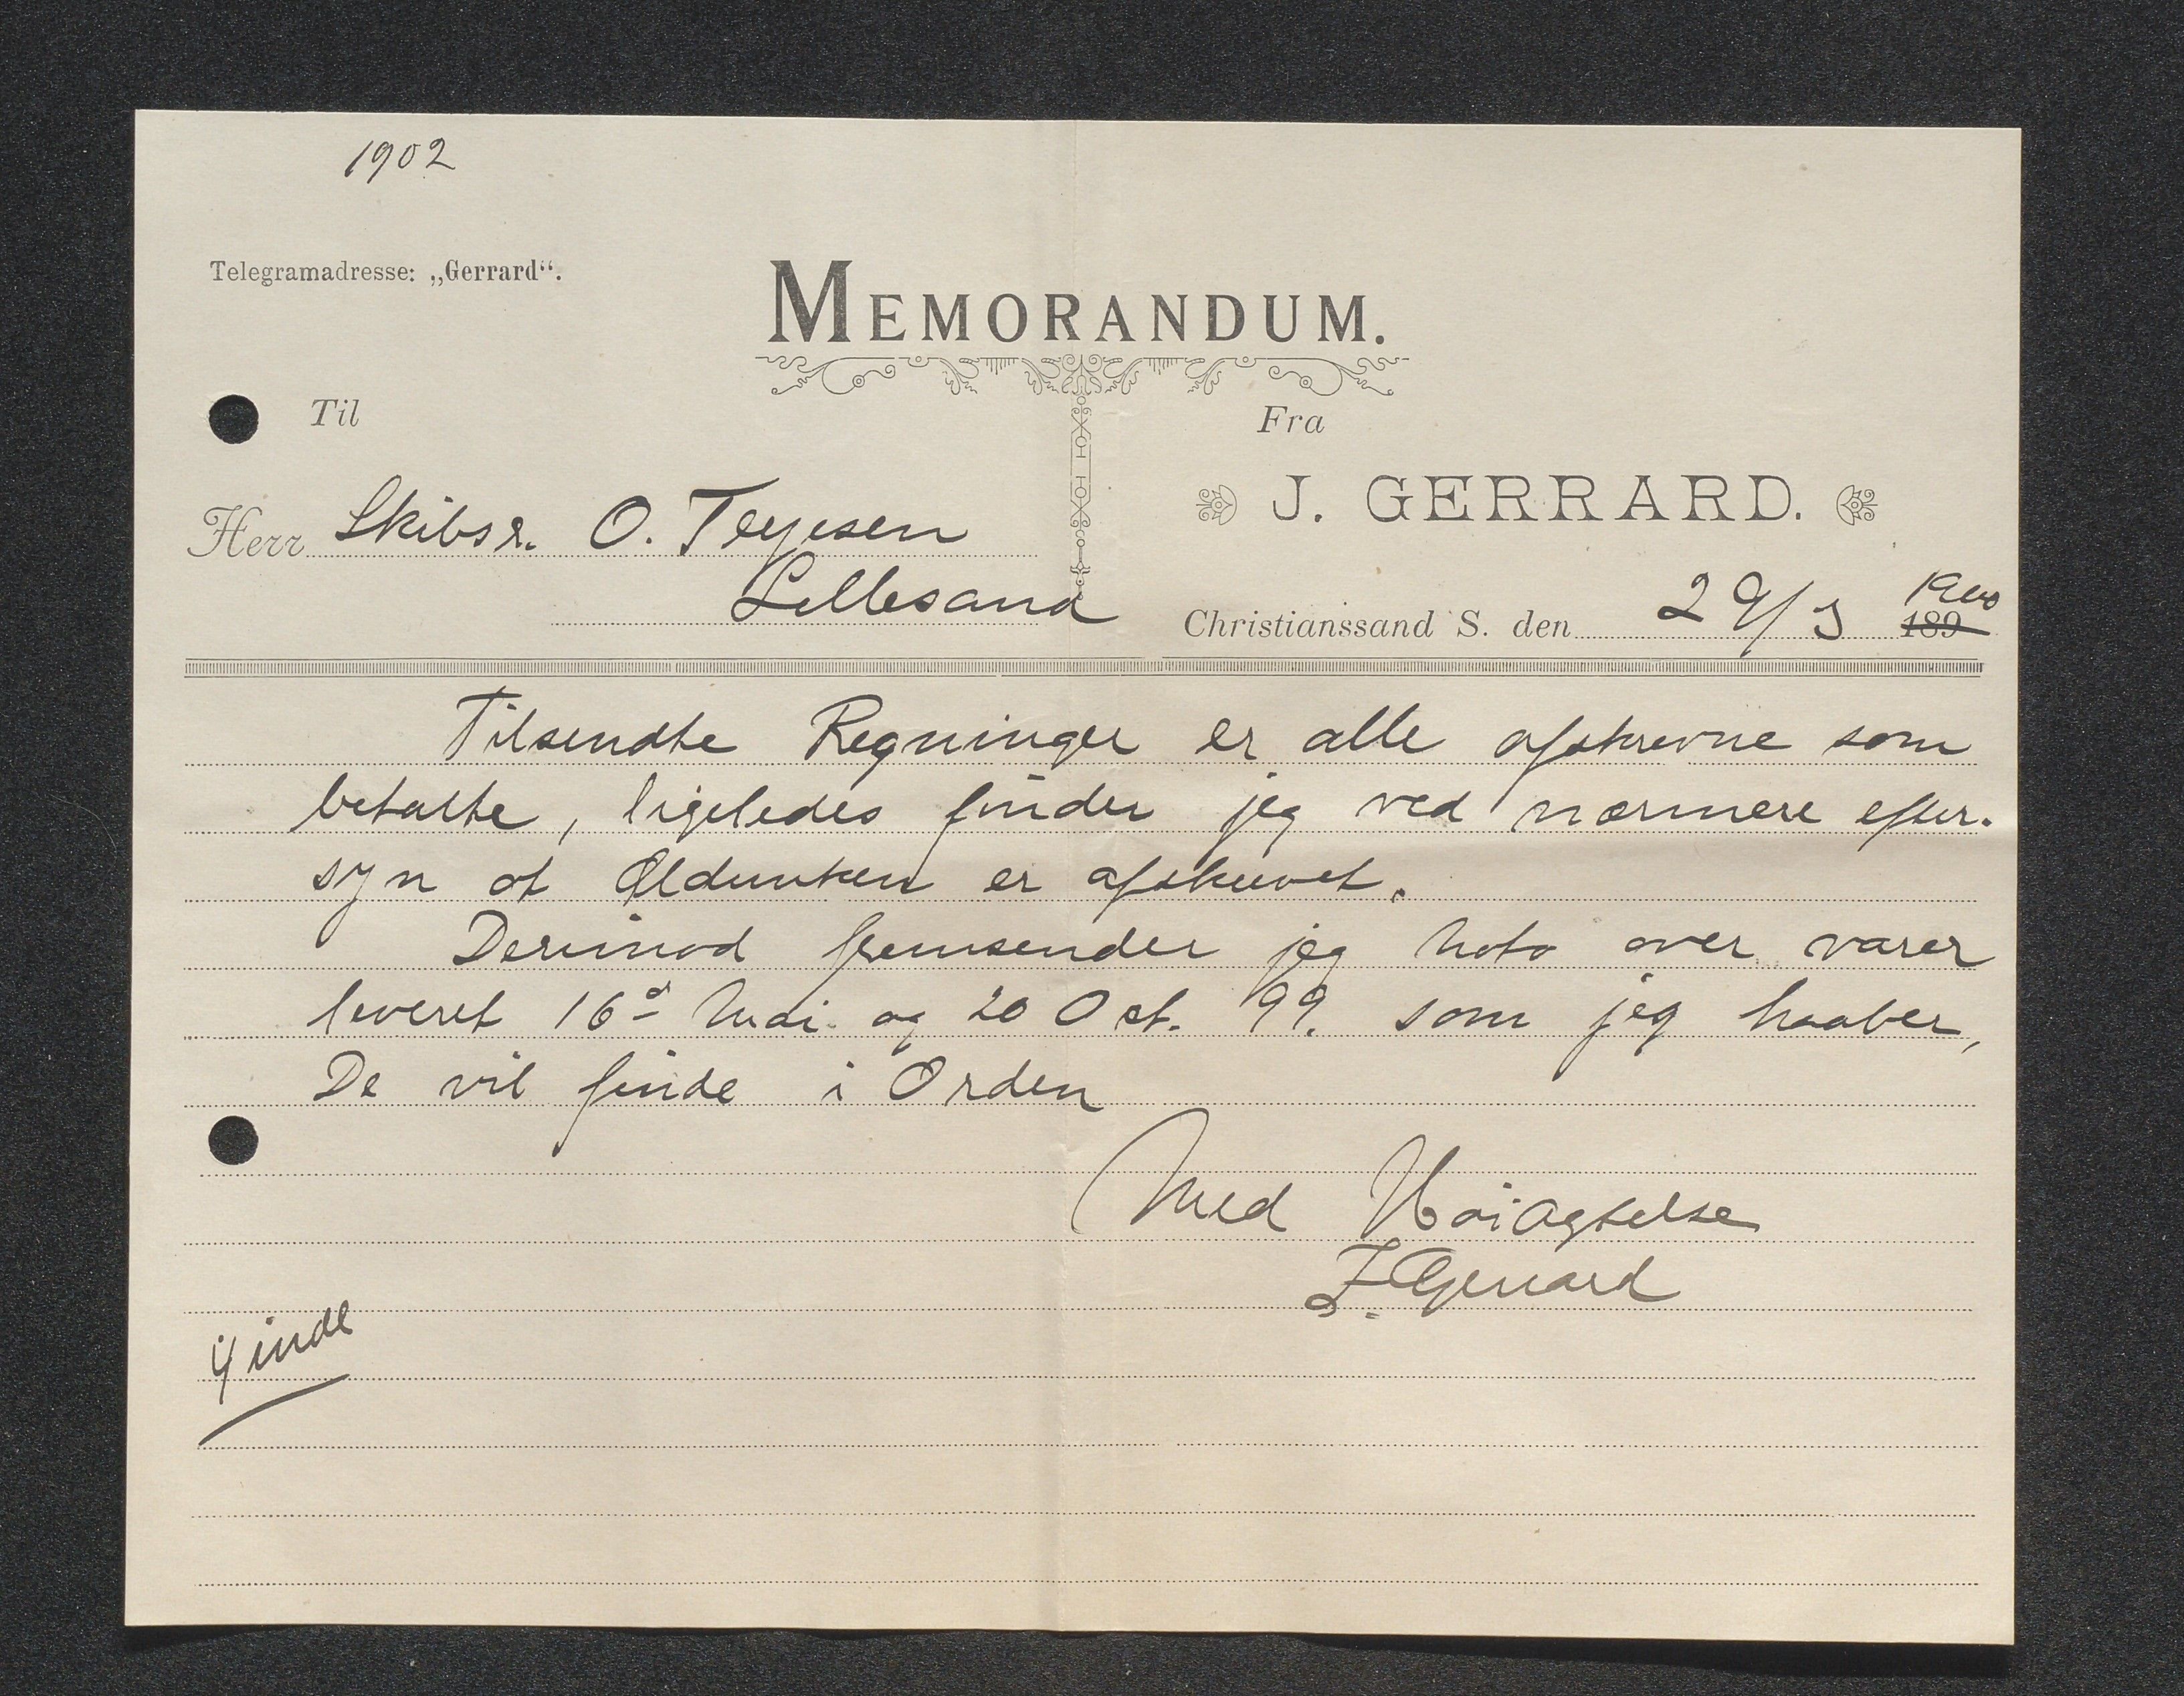 1902
Telegramadresse: „Gerrard“.
MEMORANDUM.
Til
Fra
Herr Skibsr. O. Terjesen
J. GERRARD.
Lillesand
Christianssand S. den 29/3 1900 189
Tilsendte Regninger er alle afskrevne som
betalte, ligeledes finder jeg ved nærmere efter-
syn at Øldunken er afskrevet.
Derimod fremsender jeg Nota over varer
leveret 16d Mai og 20 Oct. 99. som jeg haaber,
De vil finde i Orden
Med Høiagtelse
J. Gerrard
inde